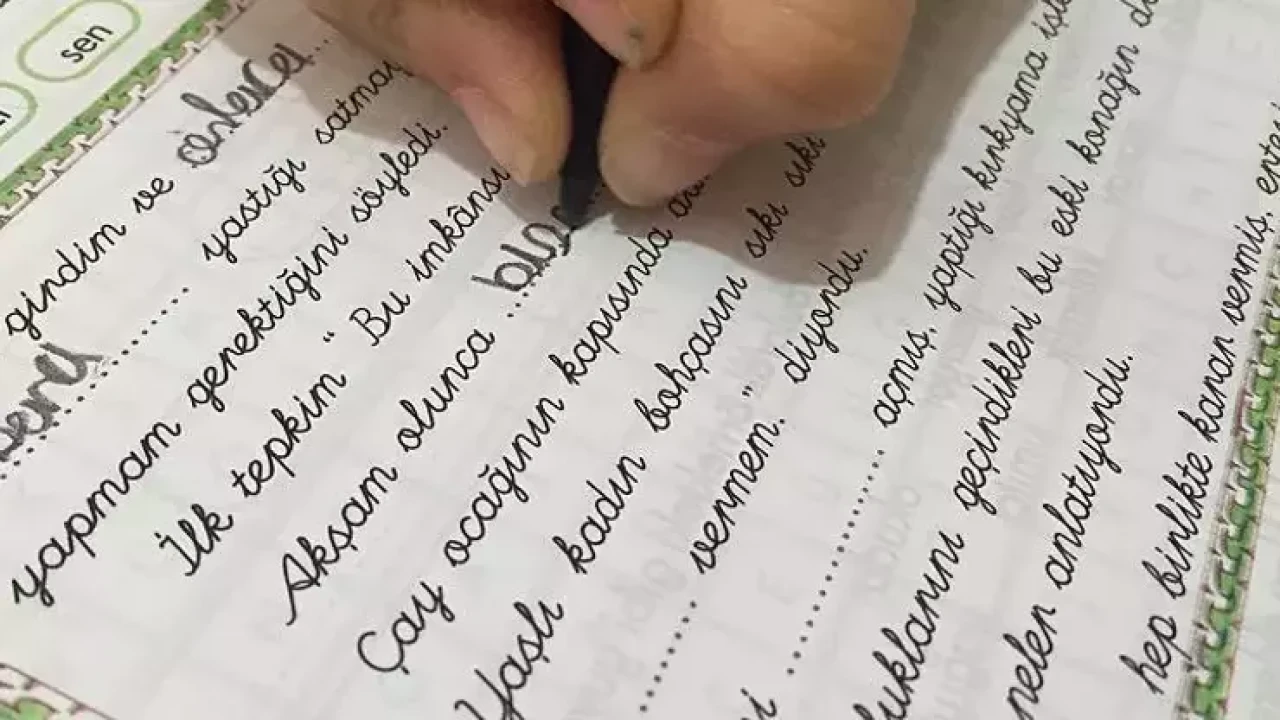 sen
girdim ve
yastığı satmay
yapmam gerektiğini söyledi.
İlk tepkim “ Bu imkânsı
Akşam olunca ...
Çay ocağının kapısında
Yaşlı kadın bohçasını sıkı sıkı
vermem. ” diyordu.
açmış, yaptığı kırkyama
uklarını geçindikleri bu eski konağın
neler anlatıyordu.
hep birlikte karar vermiş,